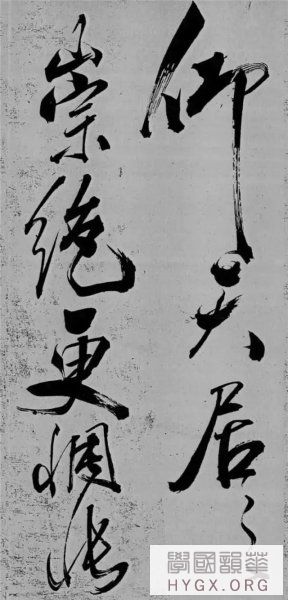 仰天居之
崇絶更惆悵
華韻國學
HYGX.ORG